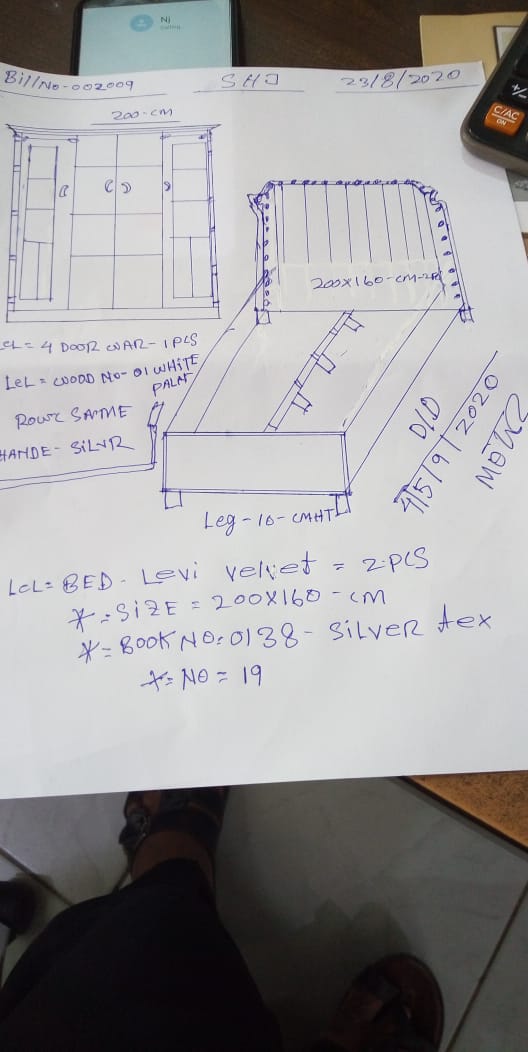 Nj
calling...
Bill No - 002009
SHJ
23/8/2020
C/AC
ON
+/-
200-CM
200X160-CM-2P
LCL = 4 DOOR WAR- 1 PCS
LCL = WOOD NO- 01 WHITE
PALAT
ROUZ SAME
HANDE- SILVR
Leg - 10 - CMHT
D/D
4/5/9/2020
LCL = BED - Levi velvet = 2-PCS
* = SIZE = 200X160 - CM
* = BOOK NO: 0138 - SILVER tex
* = NO = 19